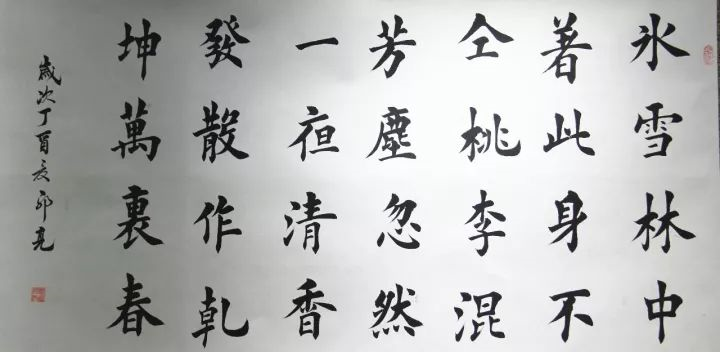 氷雪林中
著此身不
仝桃李混
芳塵忽然
一亱清香
發散作乹
坤萬裏春
歲次丁酉夏